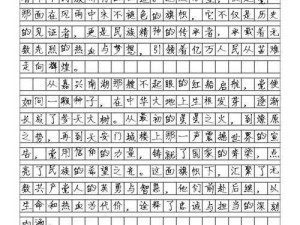 那面在风雨中永不褪色的旗帜，它不仅是历史
的见证者，更是民族精神的传承者，承载着无
数先烈的热血与梦想，引领着亿万人民从苦难
走向辉煌。
从嘉兴南湖那艘不起眼的红船启航，党便
如同一颗种子，在中华大地上生根发芽，逐渐
长成了参天大树。从最初的星星之火，到燎原
之势，再到天安门城楼上那一声震撼世界的宣
告，党用信仰的力量，铸就了国家的脊梁，点
亮了民族的希望之光。这面旗帜下，汇聚了无
数共产党人的英勇与智慧，他们前赴后继，以
生命和热血为代价，诠释了忠诚与担当的深刻
内涵。